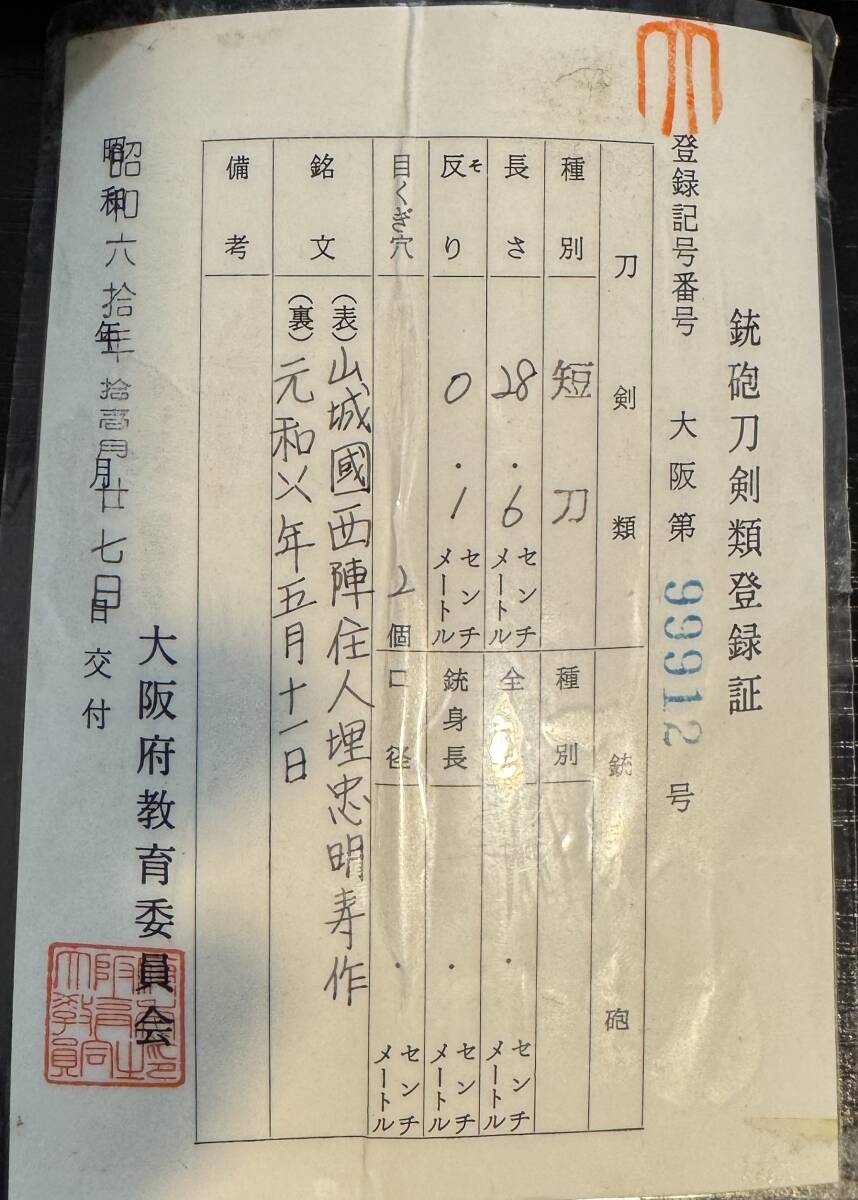 銃砲刀剣類登録証
登録記号番号 大阪第 99912 号
刀剣類 銃砲
種別 短刀 種別
長さ 28.6 センチメートル 全 . センチメートル
反り そ 0.1 センチメートル 銃身長 . センチメートル
目くぎ穴 2個 口径 . センチメートル
銘文 (表)山城國西陣住人埋忠明寿作
(裏)元和 年五月十一日
備考
昭和六拾年拾壱月廿七日交付
大阪府教育委員会